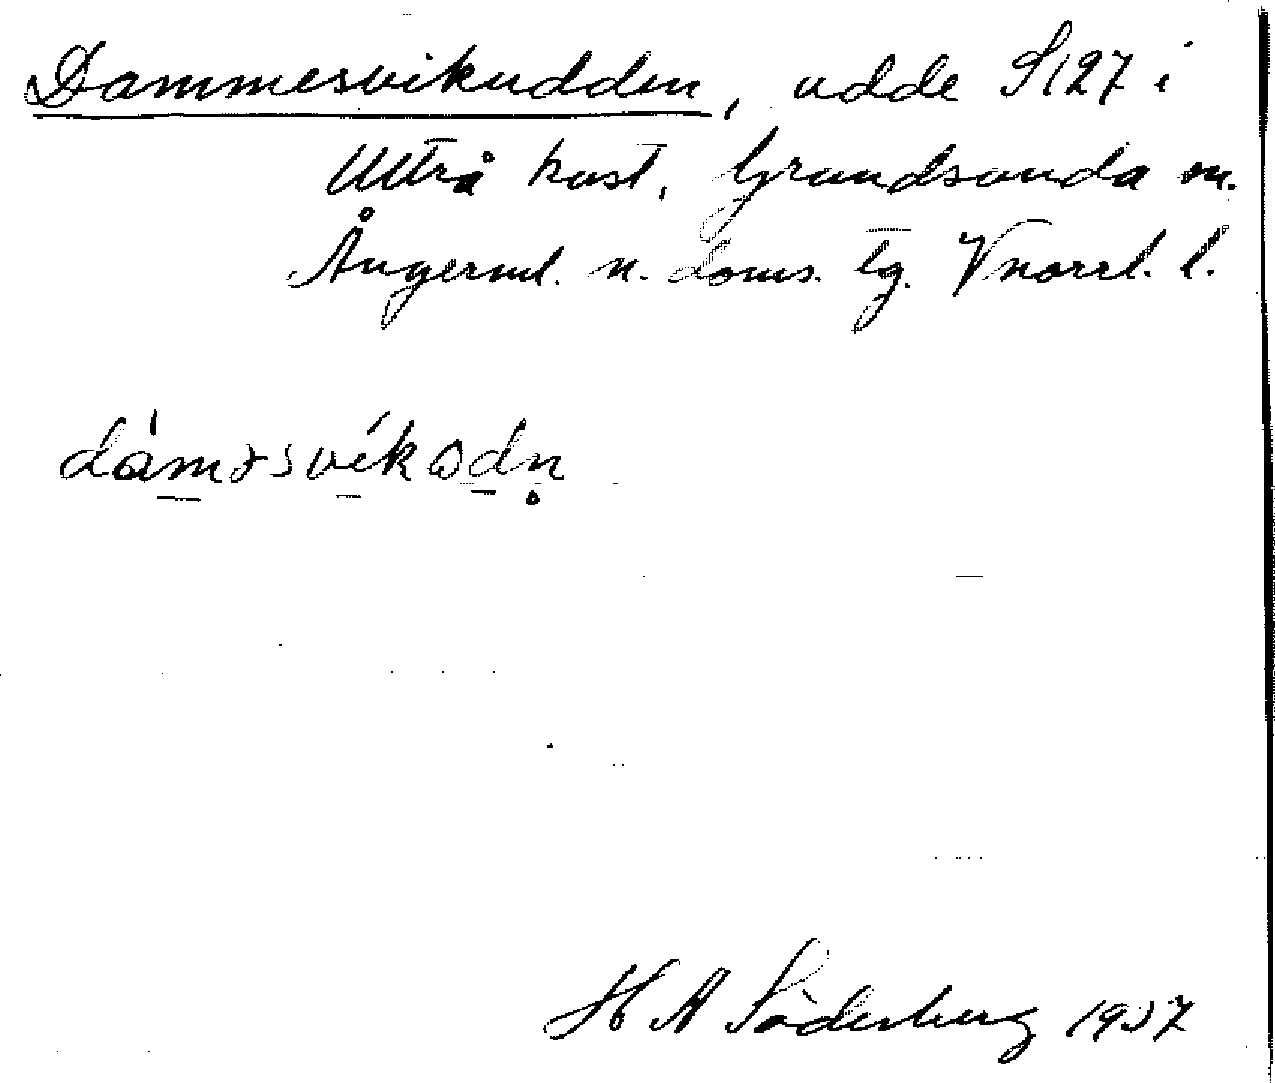 Dammesvikudden, udde S 127 i
Ultrå kust, Grundsunda sn.
Ångerml. n. doms. tg. Vnorrl. l.
dàməsvíkɷdn̥
H A Söderberg 1937